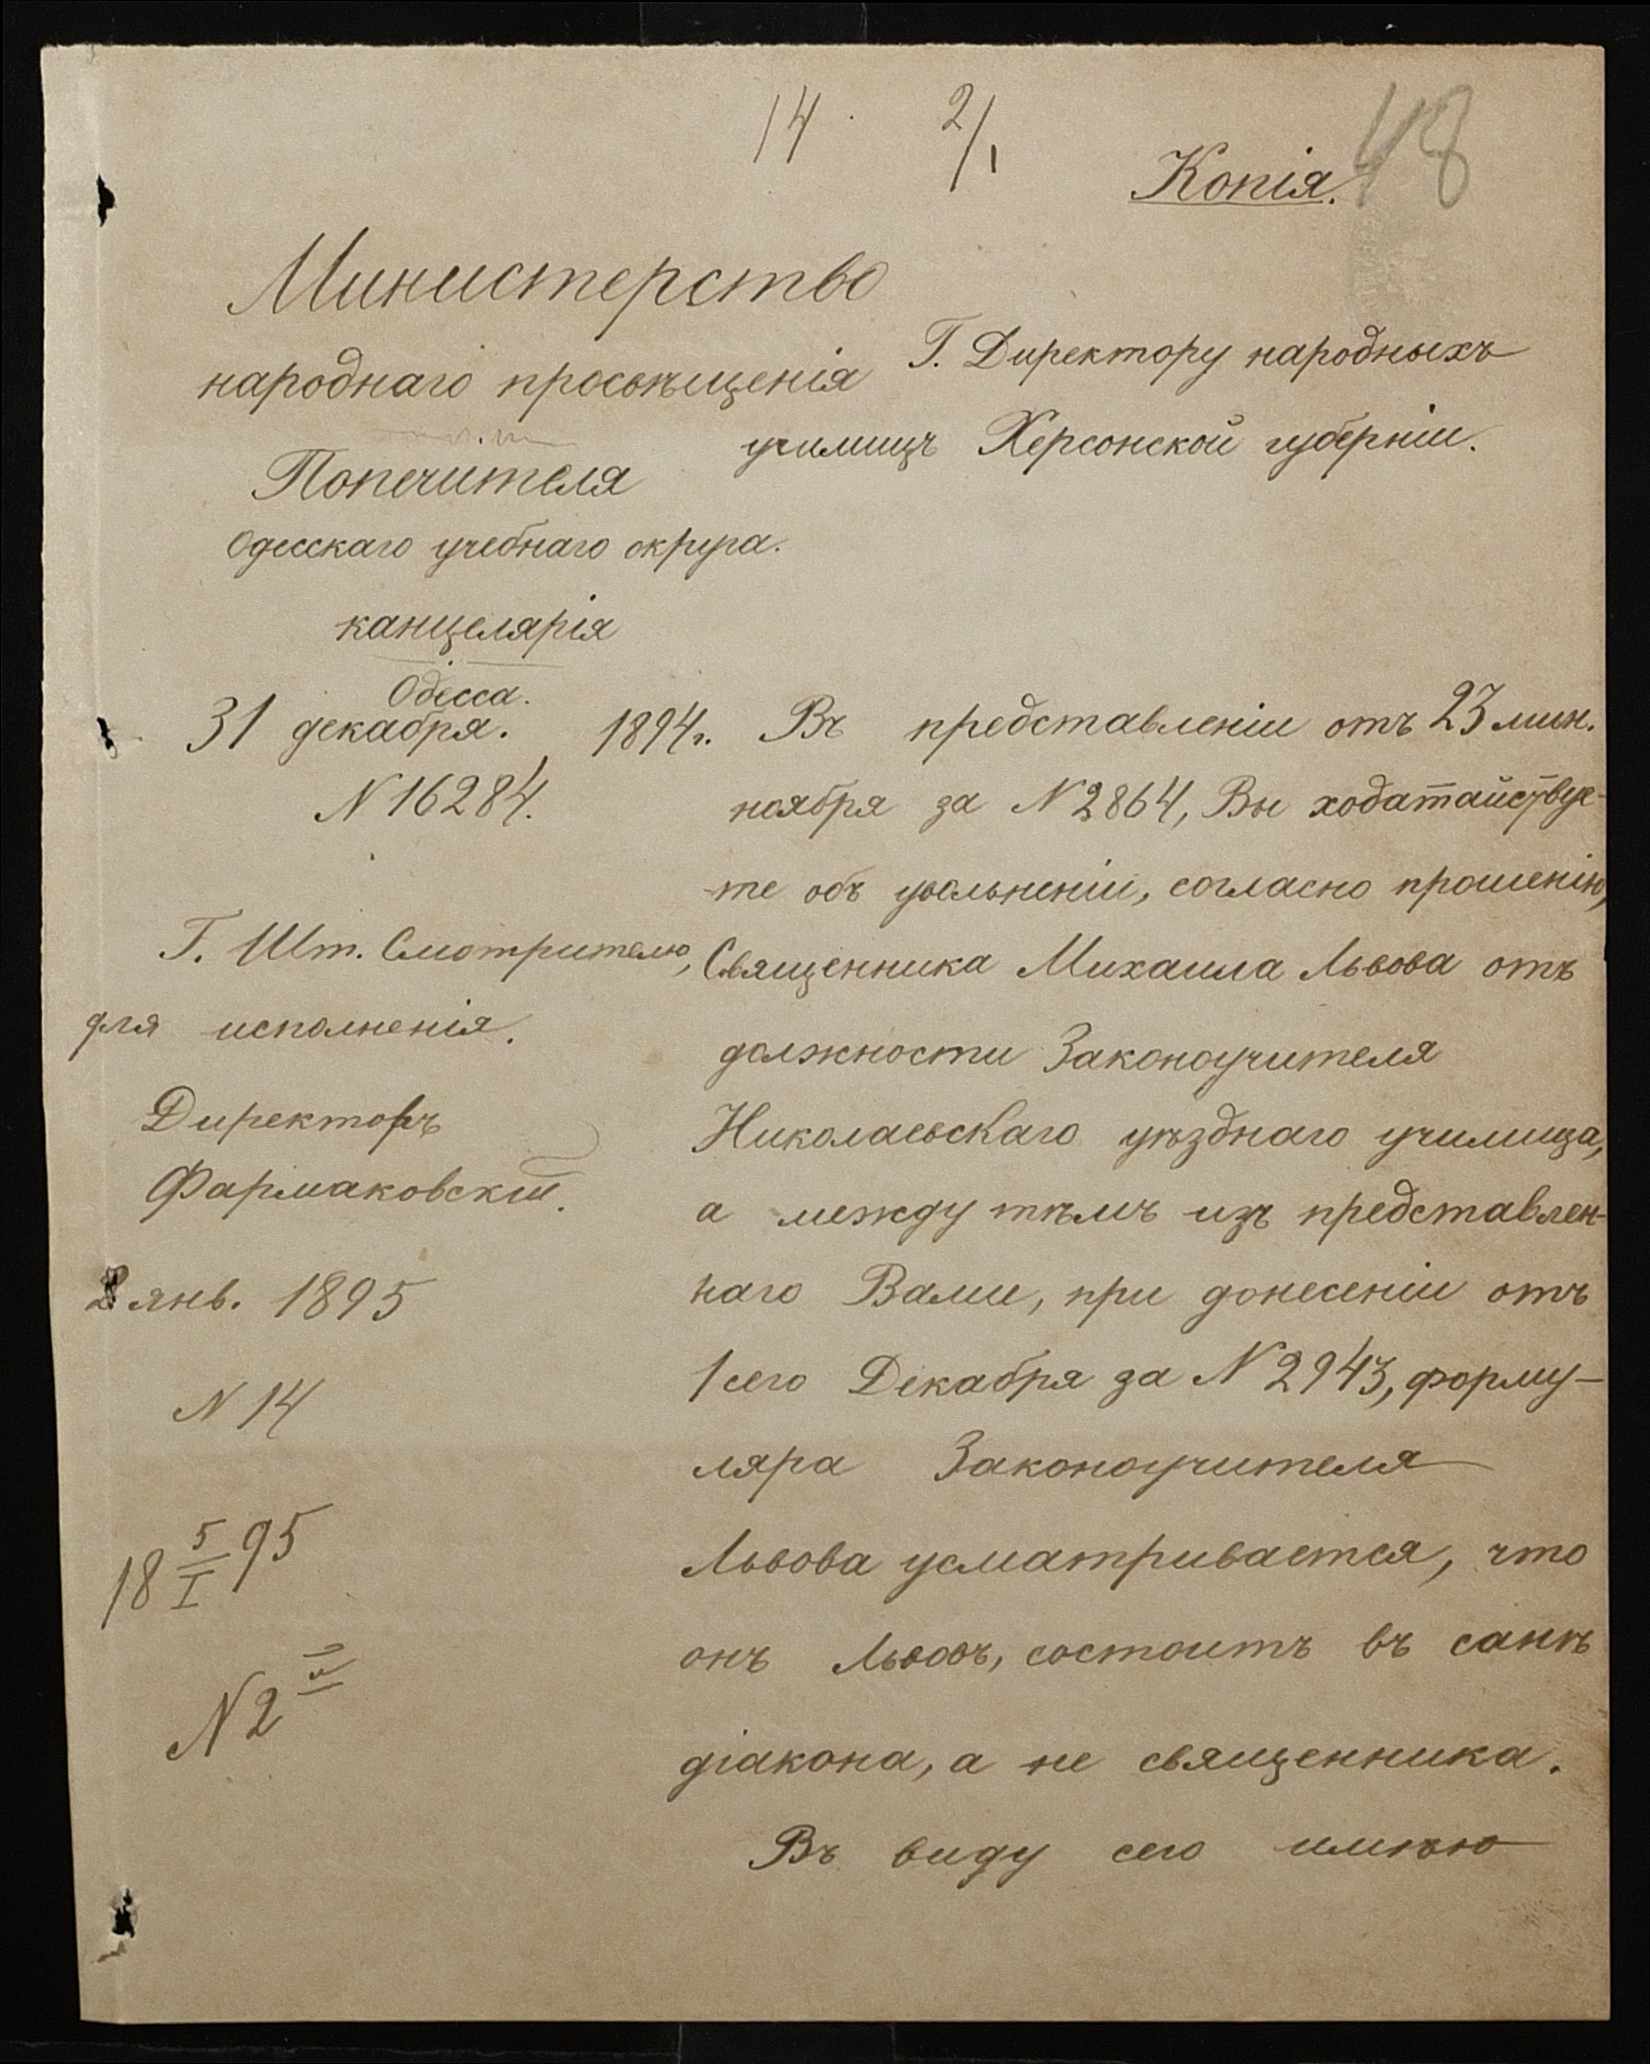 14. 2/1
Копія.
48
Министерство
народнаго просвѣщенія
Попечителя
Одесскаго учебнаго округа.
канцелярія
Одесса.
31 декабря. 1894 г.
N 16284.
Г. Шт. Смотрителю,
для исполненія.
Директоръ
Фармаковскій.
2 янв. 1895
N 14
18 5/I 95
N 2
Г. Директору народныхъ
училищъ Херсонской губерніи.
Въ представленіи отъ 23 мин.
ноября за N 2864, Вы ходатайствуе-
те объ увольненіи, согласно прошенію,
Священника Михаила Львова отъ
должности Законоучителя
Николаевскаго уѣзднаго училища,
а между тѣмъ изъ представлен-
наго Вами, при донесеніи отъ
1 сего Декабря за N 2943, форму-
ляра Законоучителя
Львова усматривается, что
онъ Львовъ, состоитъ въ санѣ
діакона, а не священника.
Въ виду сего имѣю